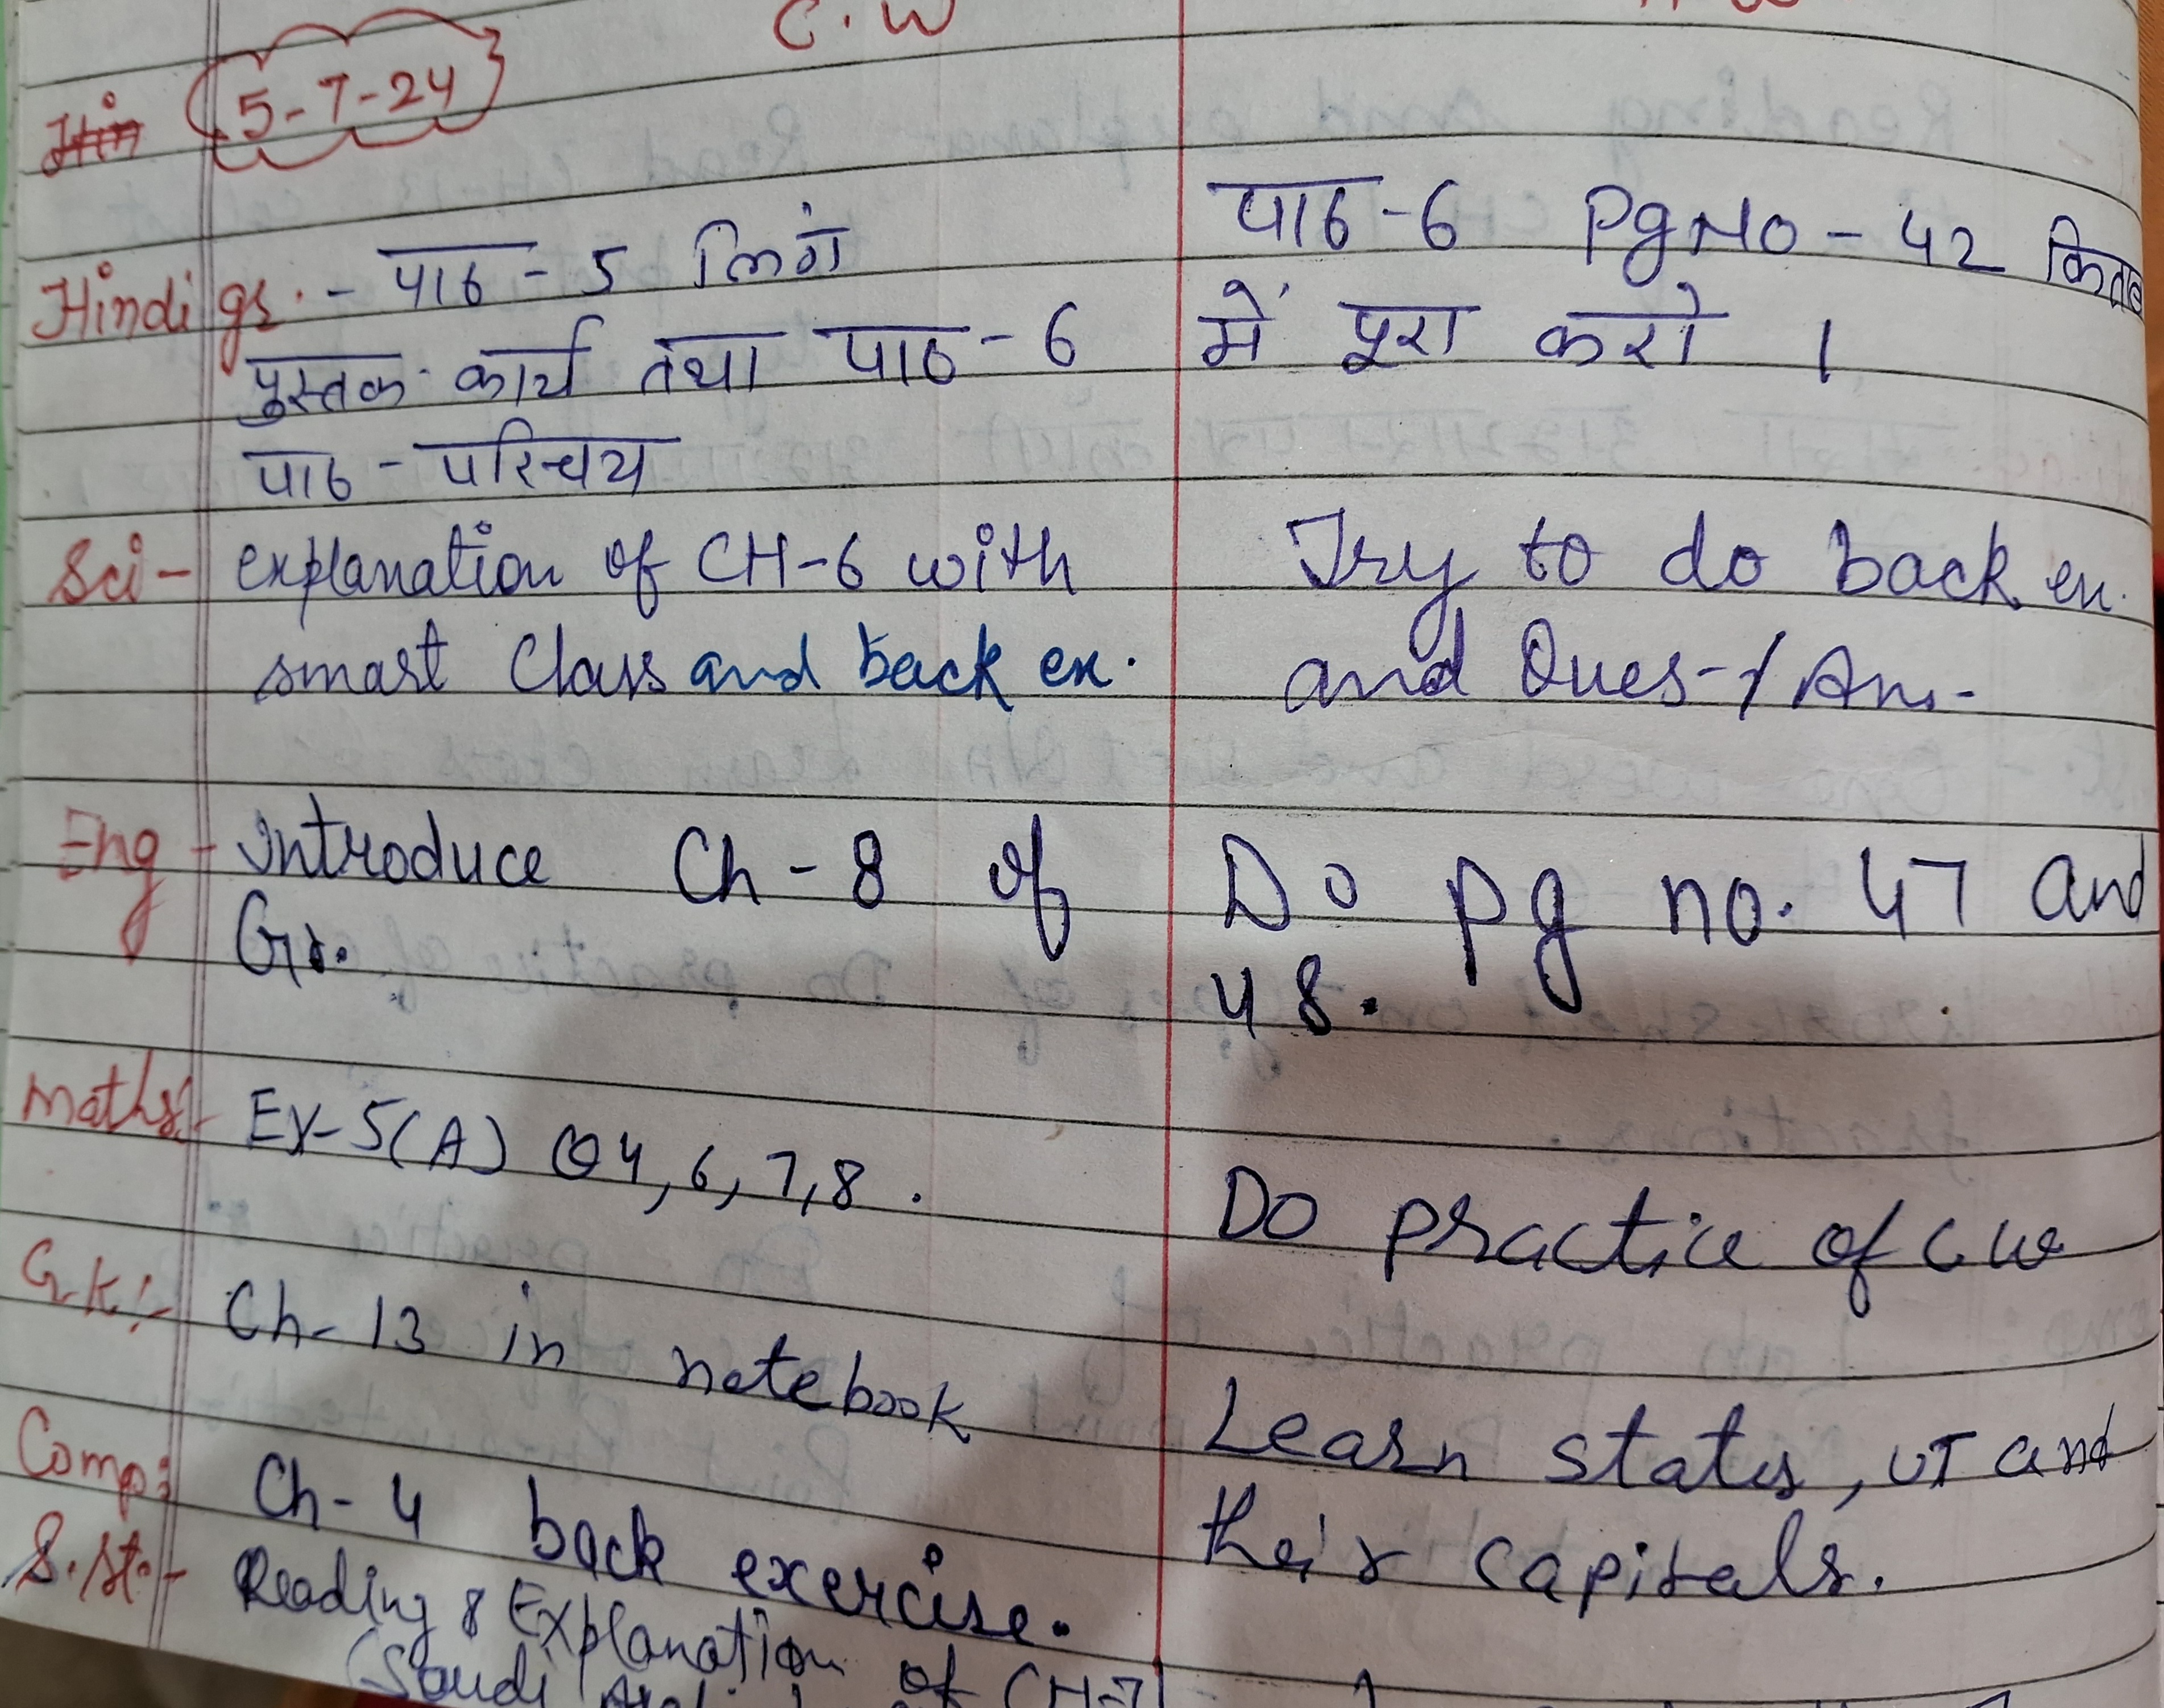 C.W
5-7-24
Hindi gr. - पाठ - 5 लिंग
पुस्तक कार्य तथा पाठ - 6
पाठ - परिचय
पाठ - 6 Pg No - 42 किताब
में पूरा करो ।
Sci - explanation of CH-6 with
smart Class and back ex.
Try to do back ex.
and Ques-/Ans-
Eng - Introduce Ch - 8 of
Gr.
Do pg no. 47 and
48.
Maths:- Ex-5(A) Q4, 6, 7, 8.
Do practice of cw
G.K:- Ch-13 in notebook
Learn states, UT and
their capitals.
Comp: Ch-4 back exercise.
S.st:- Reading & Explanation
of CH-7
(Saudi